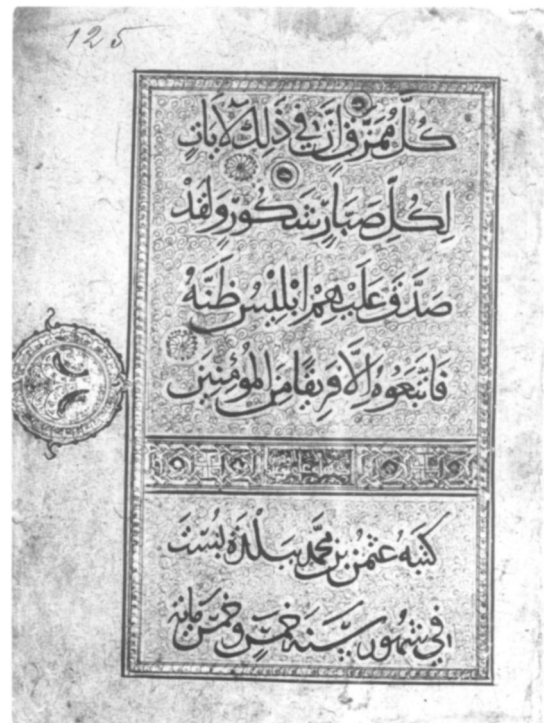 125
كُلَّ مُمَزَّقٍ إِنَّ فِي ذَلِكَ لَآيَاتٍ
لِكُلِّ صَبَّارٍ شَكُورٍ وَلَقَدْ
صَدَّقَ عَلَيْهِمْ إِبْلِيسُ ظَنَّهُ
فَاتَّبَعُوهُ إِلَّا فَرِيقًا مِنَ الْمُؤْمِنِينَ
كتبه عثمن بن محمد ببلدة بست
في شهور سنة خمس وخمس مايه